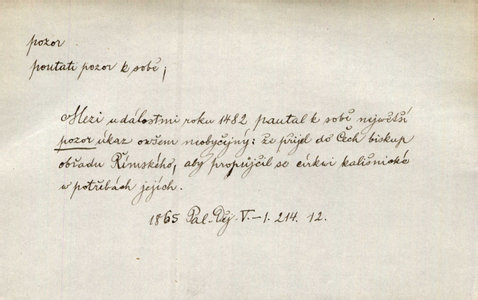 pozor
poutati pozor k sobě;
Mezi událostmi roku 1482 pautal k sobě největší
pozor úkaz ovšem neobyčejný: že přijd do Čech biskup
obřadu Římského, aby propůjčil se církvi kališnické
w potřebách jejich.
1865 Pal. Děj. V.-1. 214. 12.